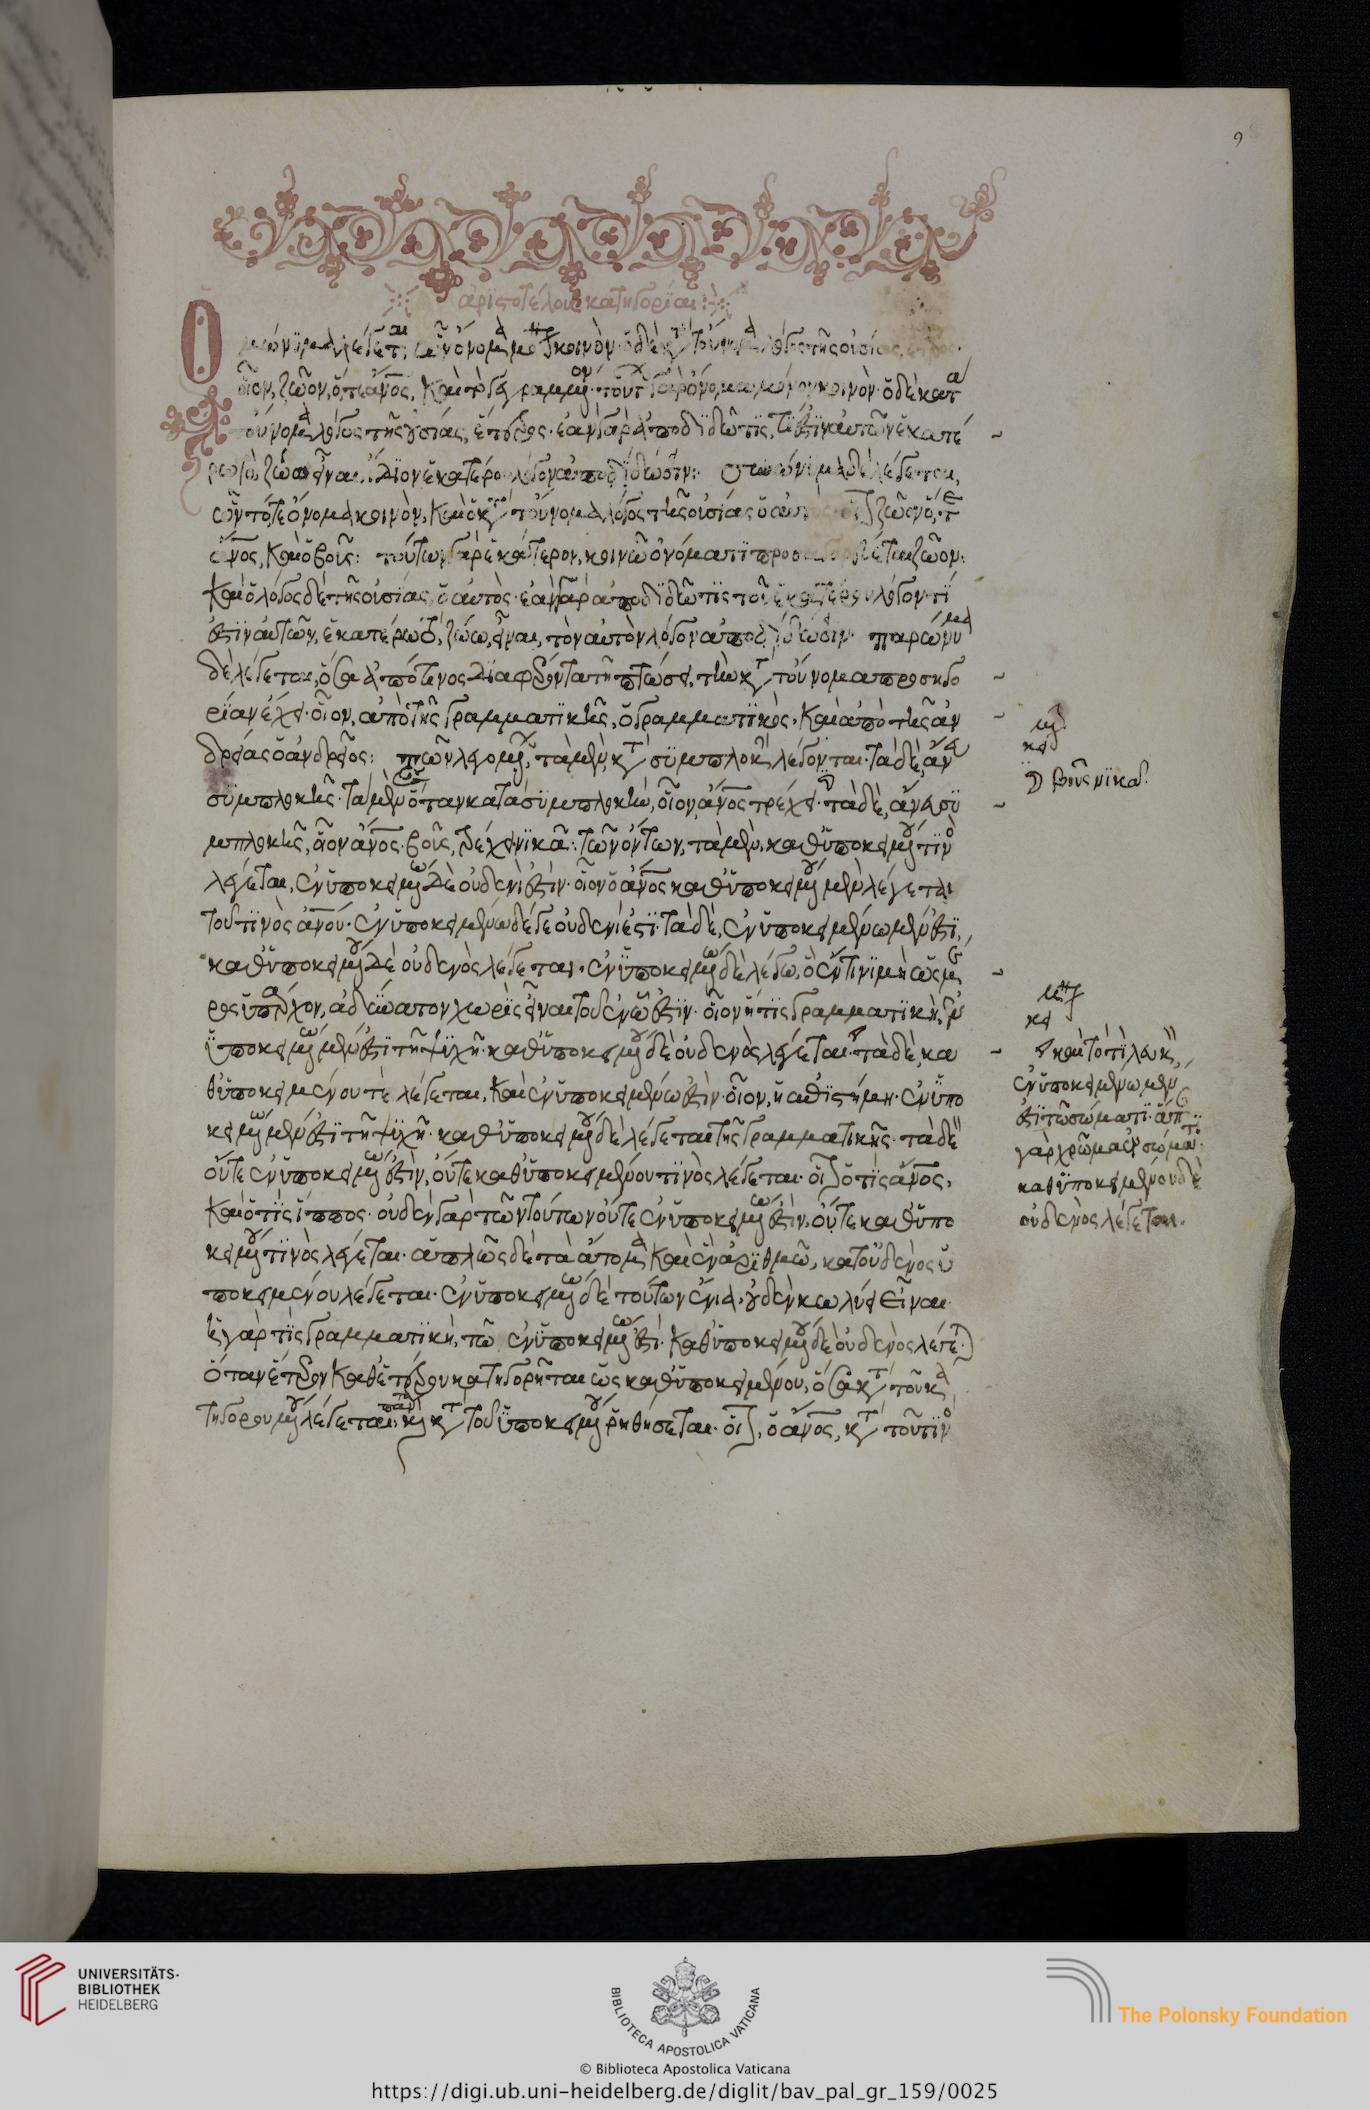 9
ἀριστοτέλους κατηγορίαι
Ὁμώνυμα λέγεται, ὧν ὄνομα μόνον κοινὸν· ὁ δὲ κατὰ τοὔνομα λόγος τῆς οὐσίας, ἕτερος·
οἷον, ζῶον, ὅ, τε ἄνος, καὶ τὸ γεγραμμένον· τούτων γὰρ ὄνομα μόνον κοινὸν· ὁ δὲ κατὰ
τοὔνομα λόγος τῆς οὐσίας, ἕτερος· ἐὰν γὰρ ἀποδιδῶ τις, τί ἐστιν αὐτῶν ἑκατέ
ρω τὸ, ζώω εἶναι, ἴδιον ἑκατέρου λόγον ἀποδώσει· συνώνυμα δὲ λέγεται,
ὧν τό, τε ὄνομα κοινὸν, καὶ ὁ κατὰ τοὔνομα λόγος τῆς οὐσίας ὁ αὐτὸς· οἷον ζῶον ὅ, τε
ἄνος, καὶ ὁ βοῦς· τούτων γὰρ ἑκάτερον, κοινῶ ὀνόματι προσαγορεύεται ζῶον·
καὶ ὁ λόγος δὲ τῆς οὐσίας, ὁ αὐτὸς· ἐὰν γὰρ ἀποδιδῶ τις τὸν ἑκατέρου λόγον τί
ἐστιν αὐτῶν, ἑκατέρω τὸ, ζώω, εἶναι, τὸν αὐτὸν λόγον ἀποδώσει· παρώνυμα
δὲ λέγεται, ὅσα ἀπό τινος διαφέροντα τῆ πτώσει, τὴν κατὰ τοὔνομα προσηγο
ρίαν ἔχει· οἷον, ἀπὸ τῆς γραμματικῆς, ὁ γραμματικὸς· καὶ ἀπὸ τῆς ἀν
δρείας ὁ ἀνδρεῖος· τῶν λεγομένων, τὰ μὲν, κατὰ συμπλοκὴν λέγονται· τὰ δὲ, ἄνευ
συμπλοκῆς· τὰ μὲν οὖν κατὰ συμπλοκὴν, οἷον, ἄνος τρέχει· τὰ δὲ, ἄνευ συ
μπλοκῆς, οἷον ἄνος· βοῦς, τρέχει νικᾶ· τῶν ὄντων, τὰ μὲν, καθ' ὑποκειμένου τινὸς
λέγεται, ἐν ὑποκειμένω δὲ οὐδενί ἐστιν· οἷον ὁ ἄνος καθ' ὑποκειμένου μὲν λέγεται
τοῦ τινὸς ἀνου· ἐν ὑποκειμένω δέ γε οὐδενί ἐστι· τὰ δὲ, ἐν ὑποκειμένω μέν ἐστι,
καθ' ὑποκειμένου δὲ οὐδενὸς λέγεται· ἐν ὑποκειμένω δὲ λέγω, ὃ ἔν τινι μὴ ὡς μέ
ρος ὑπάρχον, ἀδύνατον χωρὶς εἶναι τοῦ ἐν ᾧ ἐστιν· οἷον ἥ τις γραμματικὴ, ἐν
ὑποκειμένω μέν ἐστι τῆ ψυχῆ· καθ' ὑποκειμένου δὲ οὐδενὸς λέγεται· τὰ δὲ, κα
θ' ὑποκειμένου τε λέγεται, καὶ ἐν ὑποκειμένω ἐστὶν· οἷον, ἡ ἐπιστήμη· ἐν ὑπο
κειμένω μέν ἐστι τῆ ψυχῆ· καθ' ὑποκειμένου δὲ λέγεται τῆς γραμματικῆς· τὰ δὲ
οὔτε ἐν ὑποκειμένω ἐστὶν, οὔτε καθ' ὑποκειμένου τινὸς λέγεται· οἷον ὅ τις ἄνος,
καὶ ὅ τις ἵππος· οὐδὲν γὰρ τῶν τούτων οὔτε ἐν ὑποκειμένω ἐστὶν, οὔτε καθ' ὑπο
κειμένου τινὸς λέγεται· ἁπλῶς δὲ τὰ ἄτομα καὶ ἓν ἀριθμῶ, κατ' οὐδενὸς ὑ
ποκειμένου λέγεται· ἐν ὑποκειμένω δὲ τούτων ἔνια, οὐδὲν κωλύει εἶναι·
ἡ γάρ τις γραμματικὴ, τῶν ἐν ὑποκειμένω ἐστί· καθ' ὑποκειμένου δὲ οὐδενὸς λέγεται
ὅταν ἕτερον καθ' ἑτέρου κατηγορῆται ὡς καθ' ὑποκειμένου, ὅσα κατὰ τοῦ κα
τηγορουμένου λέγεται πάντα καὶ κατὰ τοῦ ὑποκειμένου ῥηθήσεται· οἷον, ὁ ἄνος, κατὰ τοῦ τινὸς
βοῦς νικᾶ·
καὶ τὸ τὶ λευκὸν,
ἐν ὑποκειμένω μέν
ἐστι τῶ σώματι· ἅπαν
γὰρ χρῶμα ἐν σώματι·
καθ' ὑποκειμένου δὲ
οὐδενὸς λέγεται·
UNIVERSITÄTS-
BIBLIOTHEK
HEIDELBERG
BIBLIOTECA APOSTOLICA VATICANA
The Polonsky Foundation
© Biblioteca Apostolica Vaticana
https://digi.ub.uni-heidelberg.de/diglit/bav_pal_gr_159/0025